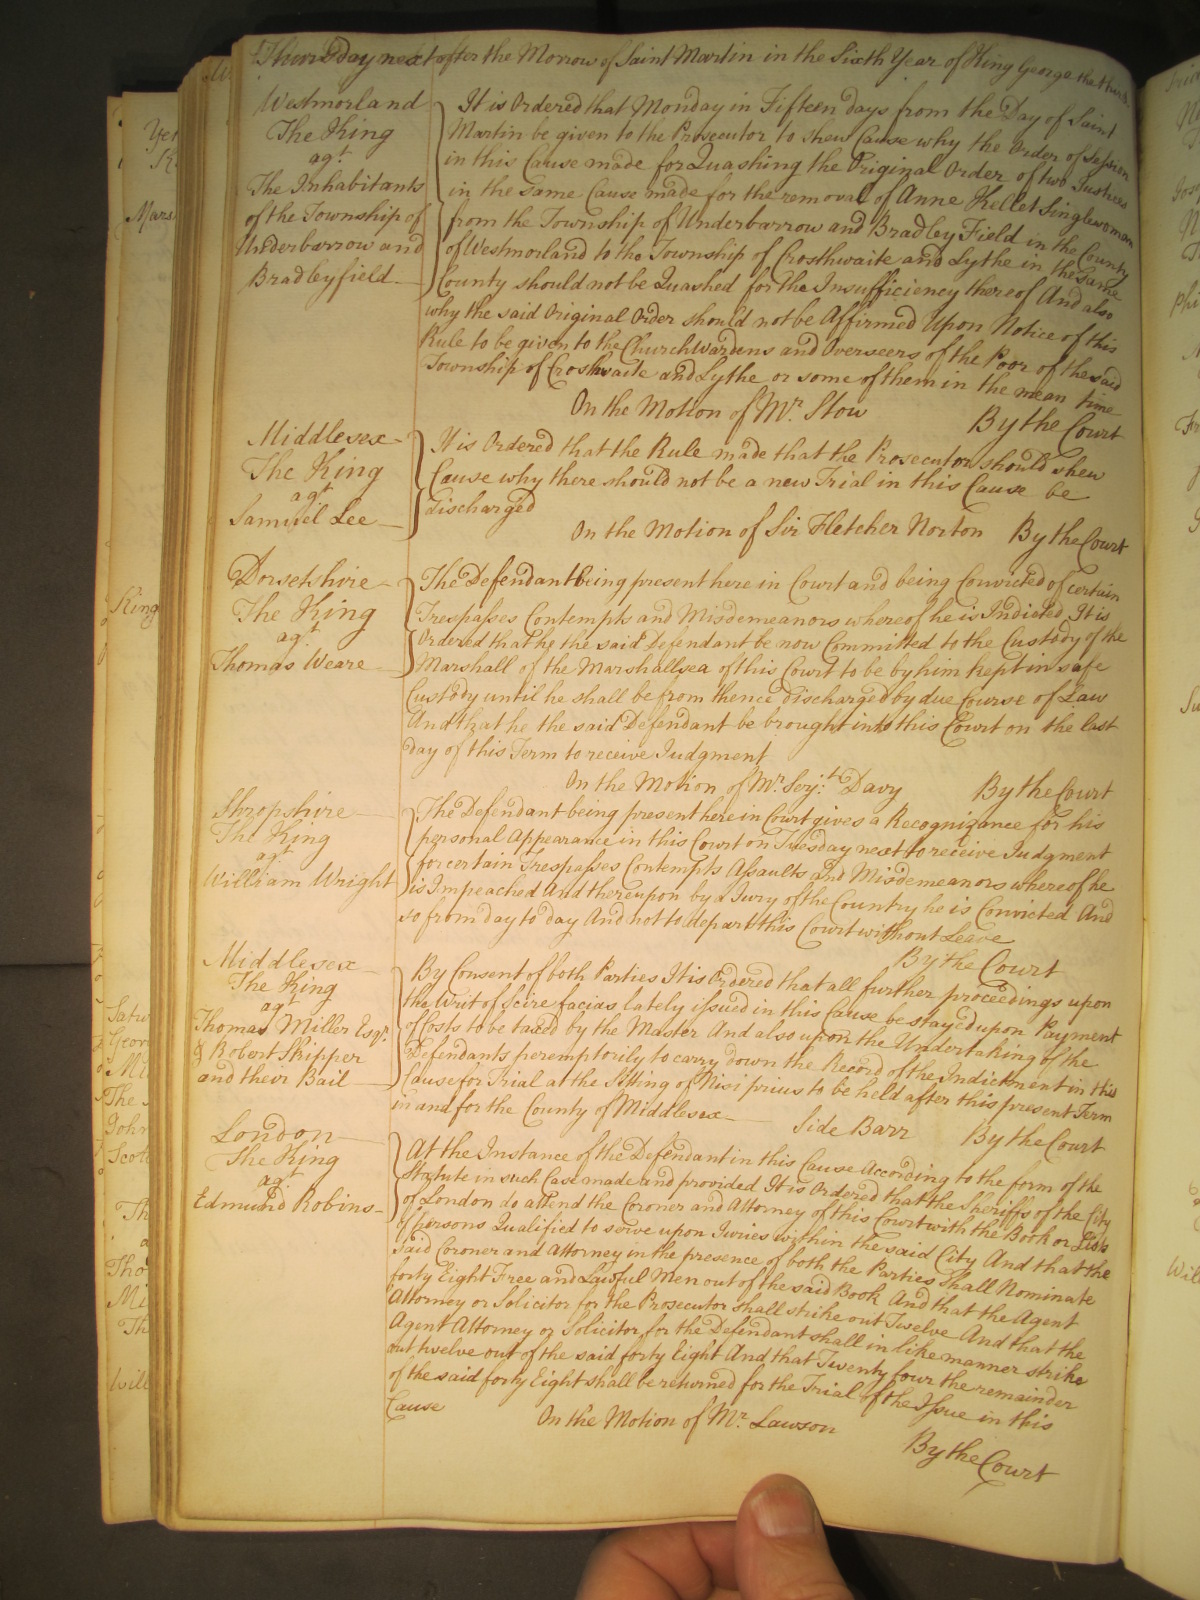 Thursday next after the Morrow of Saint Martin in the Sixth Year of King George the third.
Westmorland
The King
agt.
The Inhabitants
of the Township of
Underbarrow and
Bradleyfield
It is Ordered that Monday in Fifteen days from the Day of Saint
Martin be given to the Prosecutor to shew Cause why the Order of Session
in this Cause made for Quashing the Original Order of two Justices
in the same Cause made for the removal of Anne Kellet Singlewoman
from the Township of Underbarrow and Bradley Field in the County
of Westmorland to the Township of Crosthwaite and Lythe in the Same
County should not be Quashed for the Insufficiency thereof And also
why the said Original Order should not be Affirmed Upon Notice of this
Rule to be given to the Church Wardens and Overseers of the Poor of the said
Township of Croshwaite and Lythe or some of them in the mean time
On the Motion of Mr. Stow By the Court
Middlesex
The King
agt
Samuel Lee
It is Ordered that the Rule made that the Prosecutor should shew
Cause why there should not be a new Trial in this Cause be
discharged
On the Motion of Sir Fletcher Norton By the Court
Dorsetshire
The King
agt
Thomas Weare
The Defendant being present here in Court and being Convicted of certain
Trespasses Contempts and Misdemeanors whereof he is Indicted It is
Ordered that he the said Defendant be now Committed to the Custody of the
Marshall of the Marshallsea of this Court to be by him kept in safe
Custody until he shall be from thence discharged by due Course of Law
And that he the said Defendant be brought into this Court on the last
day of this Term to receive Judgment
On the Motion of Mr. Serjt. Davy By the Court
Shropshire
The King
agt
William Wright
The Defendant being present here in Court gives a Recognizance for his
personal Appearance in this Court on Tuesday next to receive Judgment
for certain Trespasses Contempts Assaults and Misdemeanors whereof he
is Impeached And thereupon by a Jury of the Country he is Convicted And
so from day to day And not to depart this Court without Leave
By the Court
Middlesex
The King
agt
Thomas Miller Esqr.
& Robert Skipper
and their Bail
By Consent of both Parties It is Ordered that all further proceedings upon
the Writ of Scire facias lately issued in this Cause be stayed upon Payment
of Costs to be taxed by the Master And also upon the Undertaking of the
Defendants peremptorily to carry down the Record of the Indictment in this
Cause for Trial at the Sitting of Nisi prius to be held after this present Term
in and for the County of Middlesex
Side Barr By the Court
London
The King
agt.
Edmund Robins
At the Instance of the Defendant in this Cause According to the form of the
Statute in such Case made and provided It is Ordered that the Sheriffs of the City
of London do attend the Coroner and Attorney of this Court with the Book or Lists
of persons Qualified to serve upon Juries within the said City And that the
said Coroner and Attorney in the presence of both the Parties Shall Nominate
forty Eight Free and Lawful Men out of the said Book And that the Agent
Attorney or Solicitor for the Prosecutor shall strike out Twelve And that the
Agent Attorney or Solicitor for the Defendant shall in like manner strike
out twelve out of the said forty Eight And that Twenty four the remainder
of the said forty Eight shall be returned for the Trial of the Issue in this
Cause
On the Motion of Mr. Lawson
By the Court